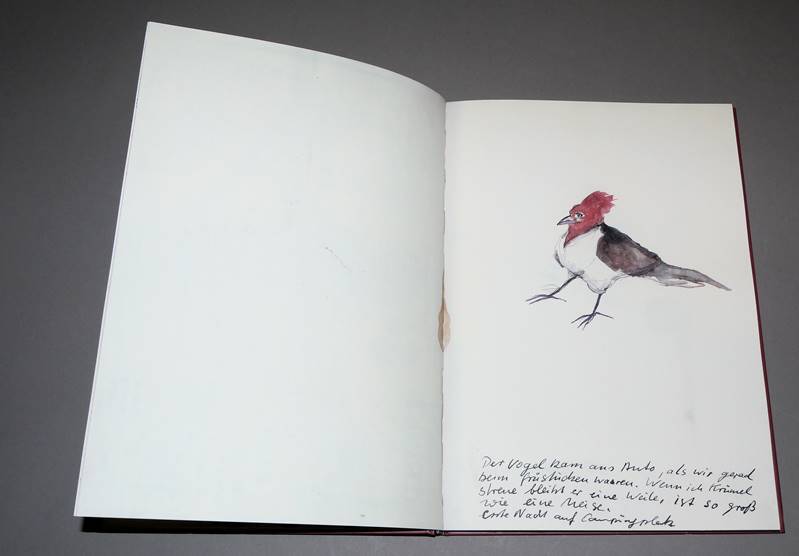 Der Vogel kam ans Auto, als wir gerad
beim früstücken waaren. Wenn ich Krümel
streue bleibt er eine Weile, ist so groß
wie eine Meise.
erste Nacht auf Campingplatz